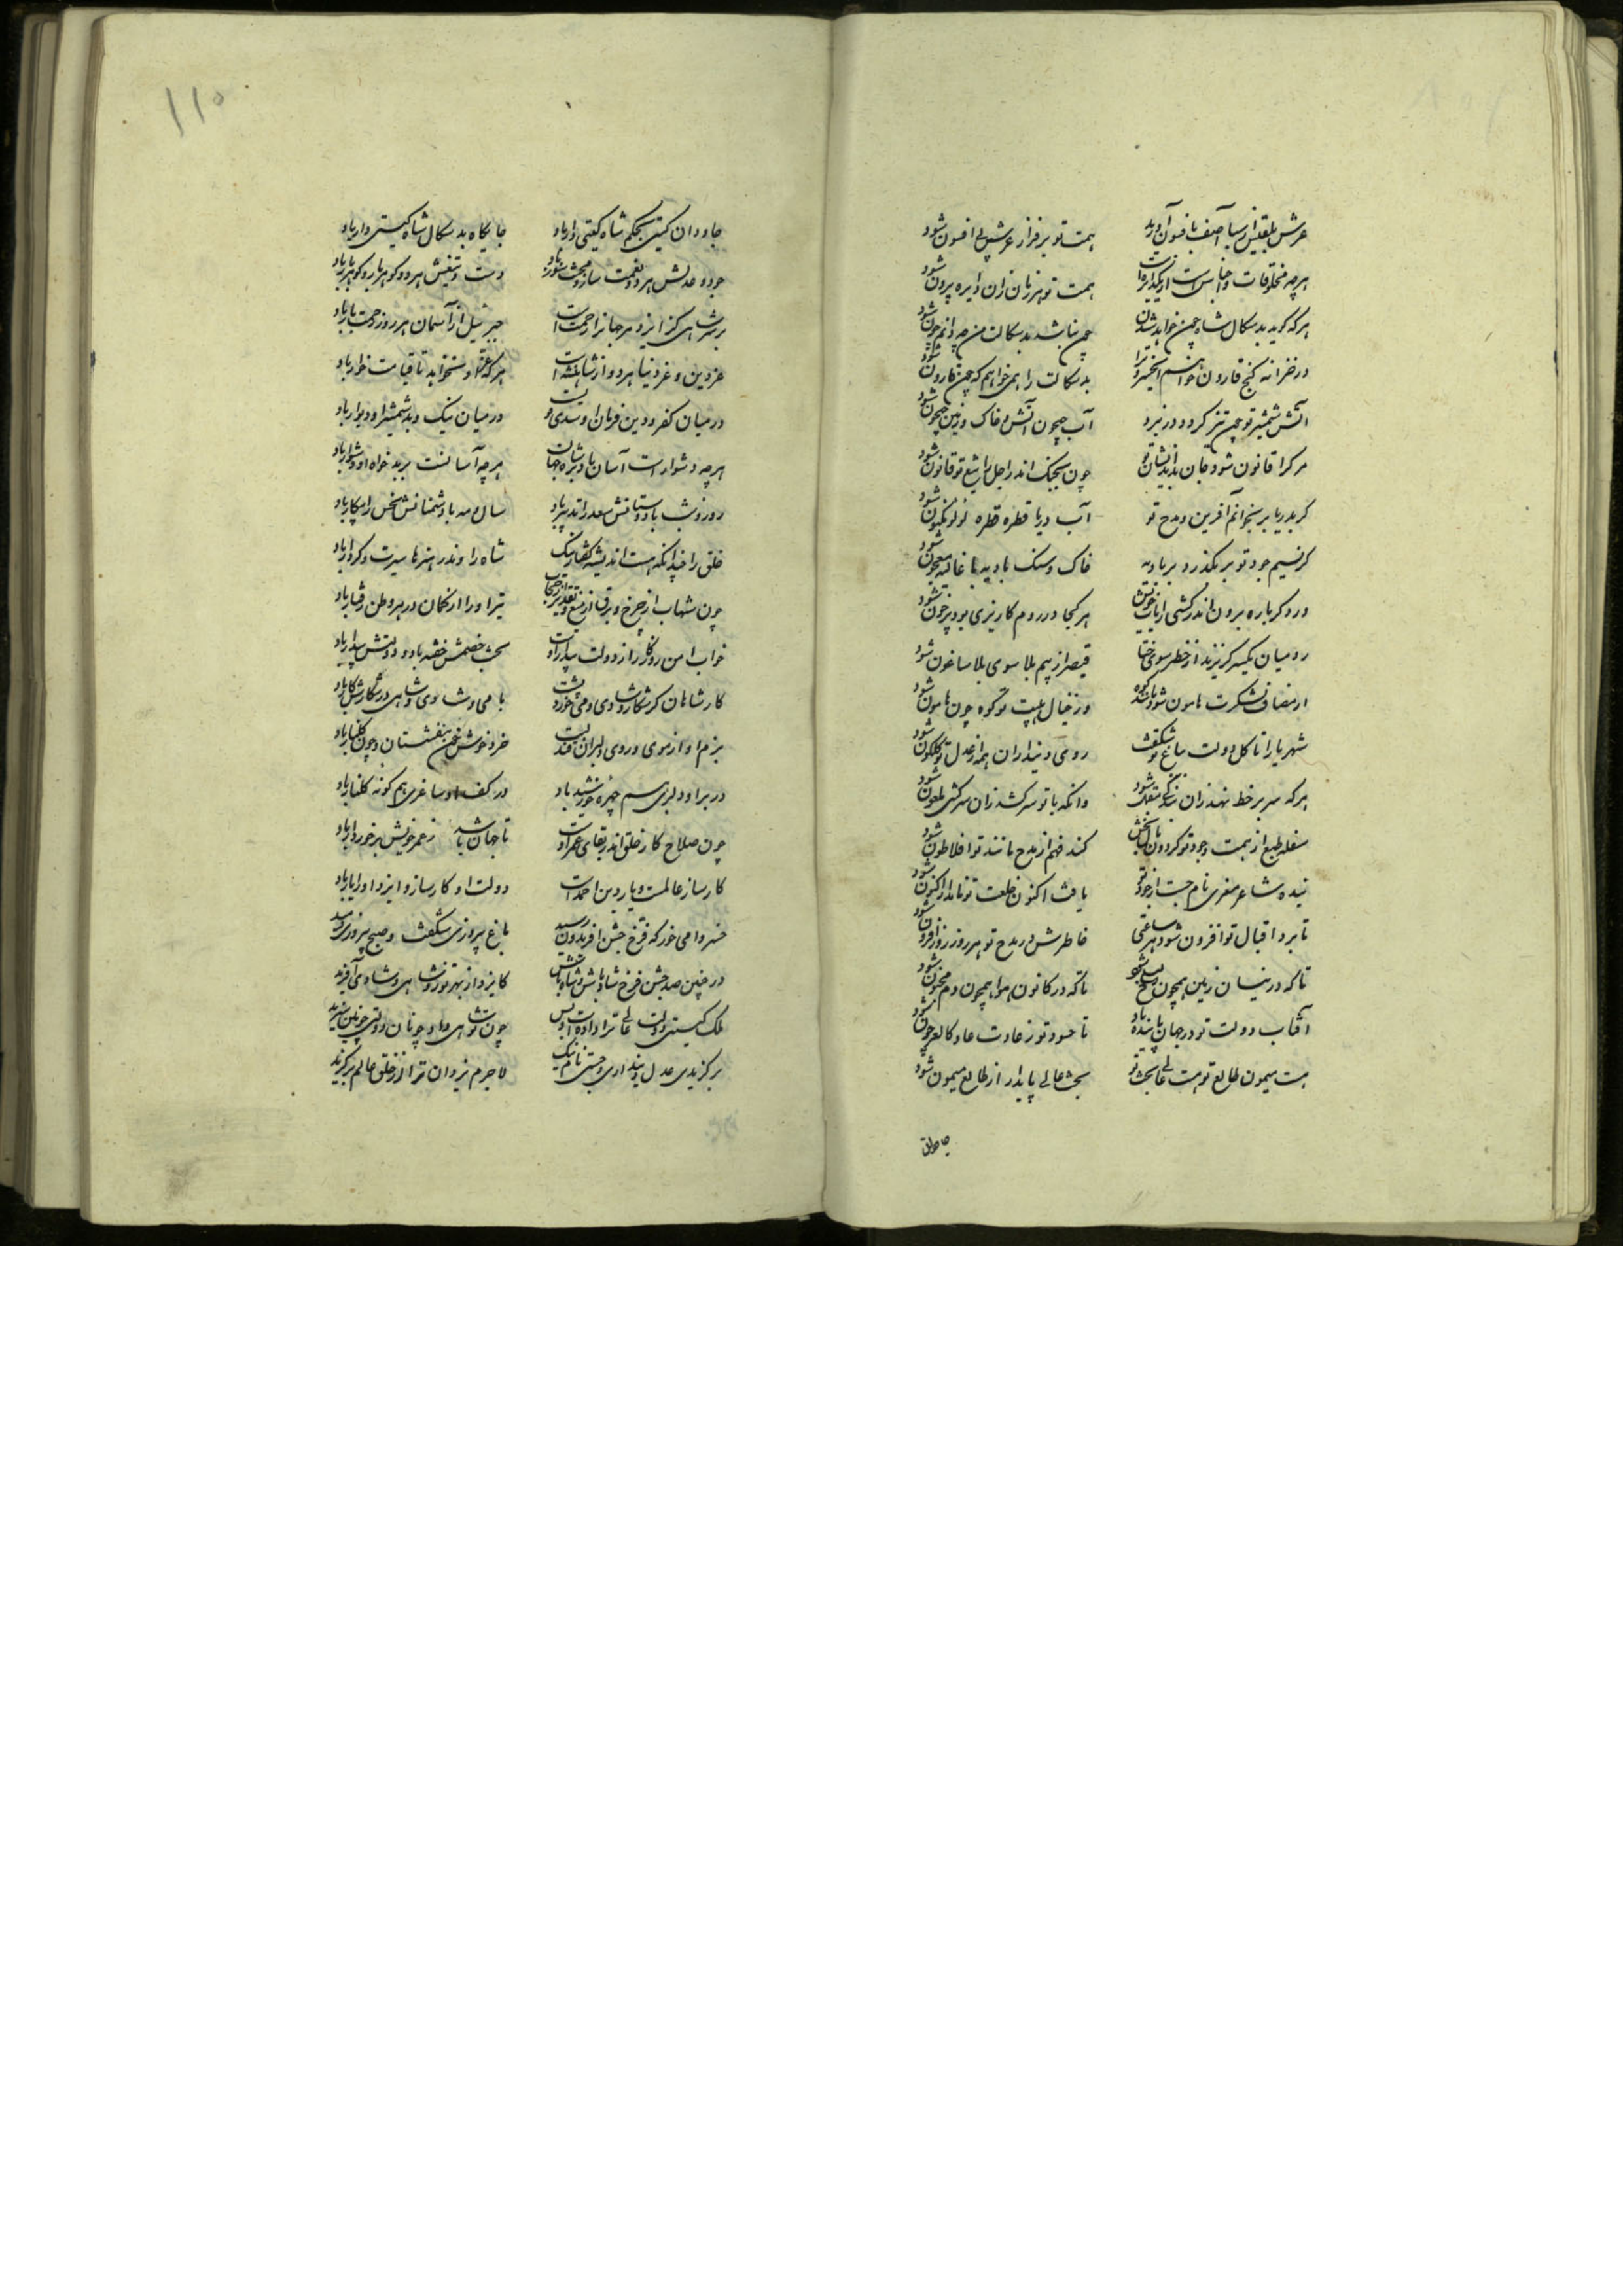 عرش بلقیس از سبا آصف بافسون آورید همت تو برفراز عرش بی افسون شود
هرچه مخلوقات و اجناس است از یک دایره است همت تو هر زمان زان دایره بیرون شود
هرکه کوید بد سکال شاه چون خواهد شدن چون نباشد بد سکالت من چه دانم چون شود
در خزانه کنج قارون خواهم آن خسرو ترا بد سکالت را همی خواهم که چون قارون شود
آتش شمشیر تو چون تیز کردد در نبرد آب جیحون آتش و خاک زمین جیحون شود
مرک را قانون شود جان بداندیشان تو چون بجنک اندر اجل را تیغ تو قانون شود
کر بدریا بر بخوانم آفرین و مدح تو آب دریا قطره قطره لولو مکنون شود
کر نسیم جود تو بر بکذرد بر بادیه خاک و سنک بادیه با غالیه معجون شود
ور دکر باره برون اندر کشی رایات خویش هر کجا در روم کاریزی بود پر خون شود
رومیان یکسر کریزند از خطر سوی ختا قیصر از بیم بلا سوی بلاساغون شود
از مصاف لشکرت هامون شود مانند کوه وز خیال هیبت تو کوه چون هامون شود
شهریارا تا کل دولت بباغ تو شکفت روی دینداران همه از عدل تو کلکون شود
هرکه سر بر خط نهد زان بندکی مقبل شود وانکه با تو سر کشد زان سرکشی ملعون شود
کند فهم از مدح مانند تو افلاطون شود
بنده شاعر معزی نام جست از جود تو یافت اکنون خلعت تو نامدار اکنون شود
تا برد اقبال تو افزون شود هر ساعتی خاطرش در مدح تو هر روز روزافزون شود
تا که در نیسان زمین همچون لب شود تا که در کانون هوا همچون دم محزون شود
آفتاب دولت تو در جهان پاینده باد تا حسود تو ز عادت عاد کالعرجون شود
هست میمون طالع تو هست عالی بخت تو بخت عالی پایدار از طالع میمون شود
جاودان
۱۱۵
جاودان کیتی بحکم شاه کیتی دار باد جایکاه بد سکال شاه کیتی دار باد
جود و عدلش هر دو نعمت ساز و محنت سوز باد دست و تیغش هر دو کوهربار و کوهردار باد
بر سر شاهی کز ایزد مر جهانرا رحمت است جبرئیل از آسمان هر روز رحمت بار باد
عز دین و عز دنیا هر دو از شاهنشه است هرکه عز او نخواهد تا قیامت خوار باد
در میان کفر و دین فرمان او سدی قویست در میان نیک و بد شمشیر او دیوار باد
هرچه دشوار است آسان باد بر شاه جهان هرچه آسانست بر بدخواه او دشوار باد
روز و شب با دوستانش سعد را تدبیر باد سال و مه با دشمنانش نحس را پیکار باد
خلق را چندانکه هست اندیشه و کفتار نیک شاه را اندر هنرها سیرت و کردار باد
چون شهاب از چرخ و برق از میغ و تقدیر از حجاب تیر او را از کمان در بهر وطن رفتار باد
خواب امن روزکار از دولت بیدار اوست بخت خصمش خفته باد و دولتش بیدار باد
کار شاهان کر شکار و شادی و می خوردنست با می و شادی و شاهی در شکارش کار باد
بزم او از موی و روی دلبران قند لب خرم و خوش چون بنفشستان و چون کلنار باد
در بر او دلبری هم چهره خورشید باد در کف او ساغری هم کونه کلنار باد
چون صلاح کار خلق اندر بقای عمر اوست تا جهان باشد ز عمر خویش برخوردار باد
کارساز عالمست و یار دین احمدست دولت او کارساز و ایزد او را یار باد
خسروا می خور که فرخ جشن افریدون رسید باغ پیروزی شکفت و صبح پیروزی دمید
در چنین صد جشن فرخ شاد باش و شاه باش کایزد از بهر تو شاهی و شادی آفرید
ملک کیتی دولت عالی ترا دادست و بس چون تو شاهی داد چونان دولتی چونین سزید
برکزیدی عدل و دینداری و جستی نام نیک لاجرم یزدان ترا از خلق عالم برکزید